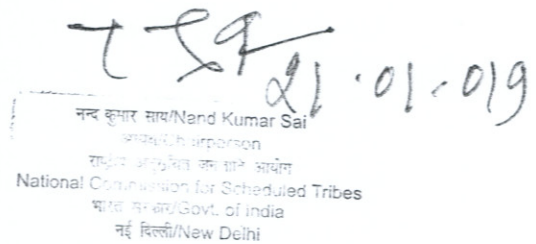 21.01.019
नन्द कुमार साय/Nand Kumar Sai
अध्यक्ष/Chairperson
राष्ट्रीय अनुसूचित जनजाति आयोग
National Commission for Scheduled Tribes
भारत सरकार/Govt. of India
नई दिल्ली/New Delhi